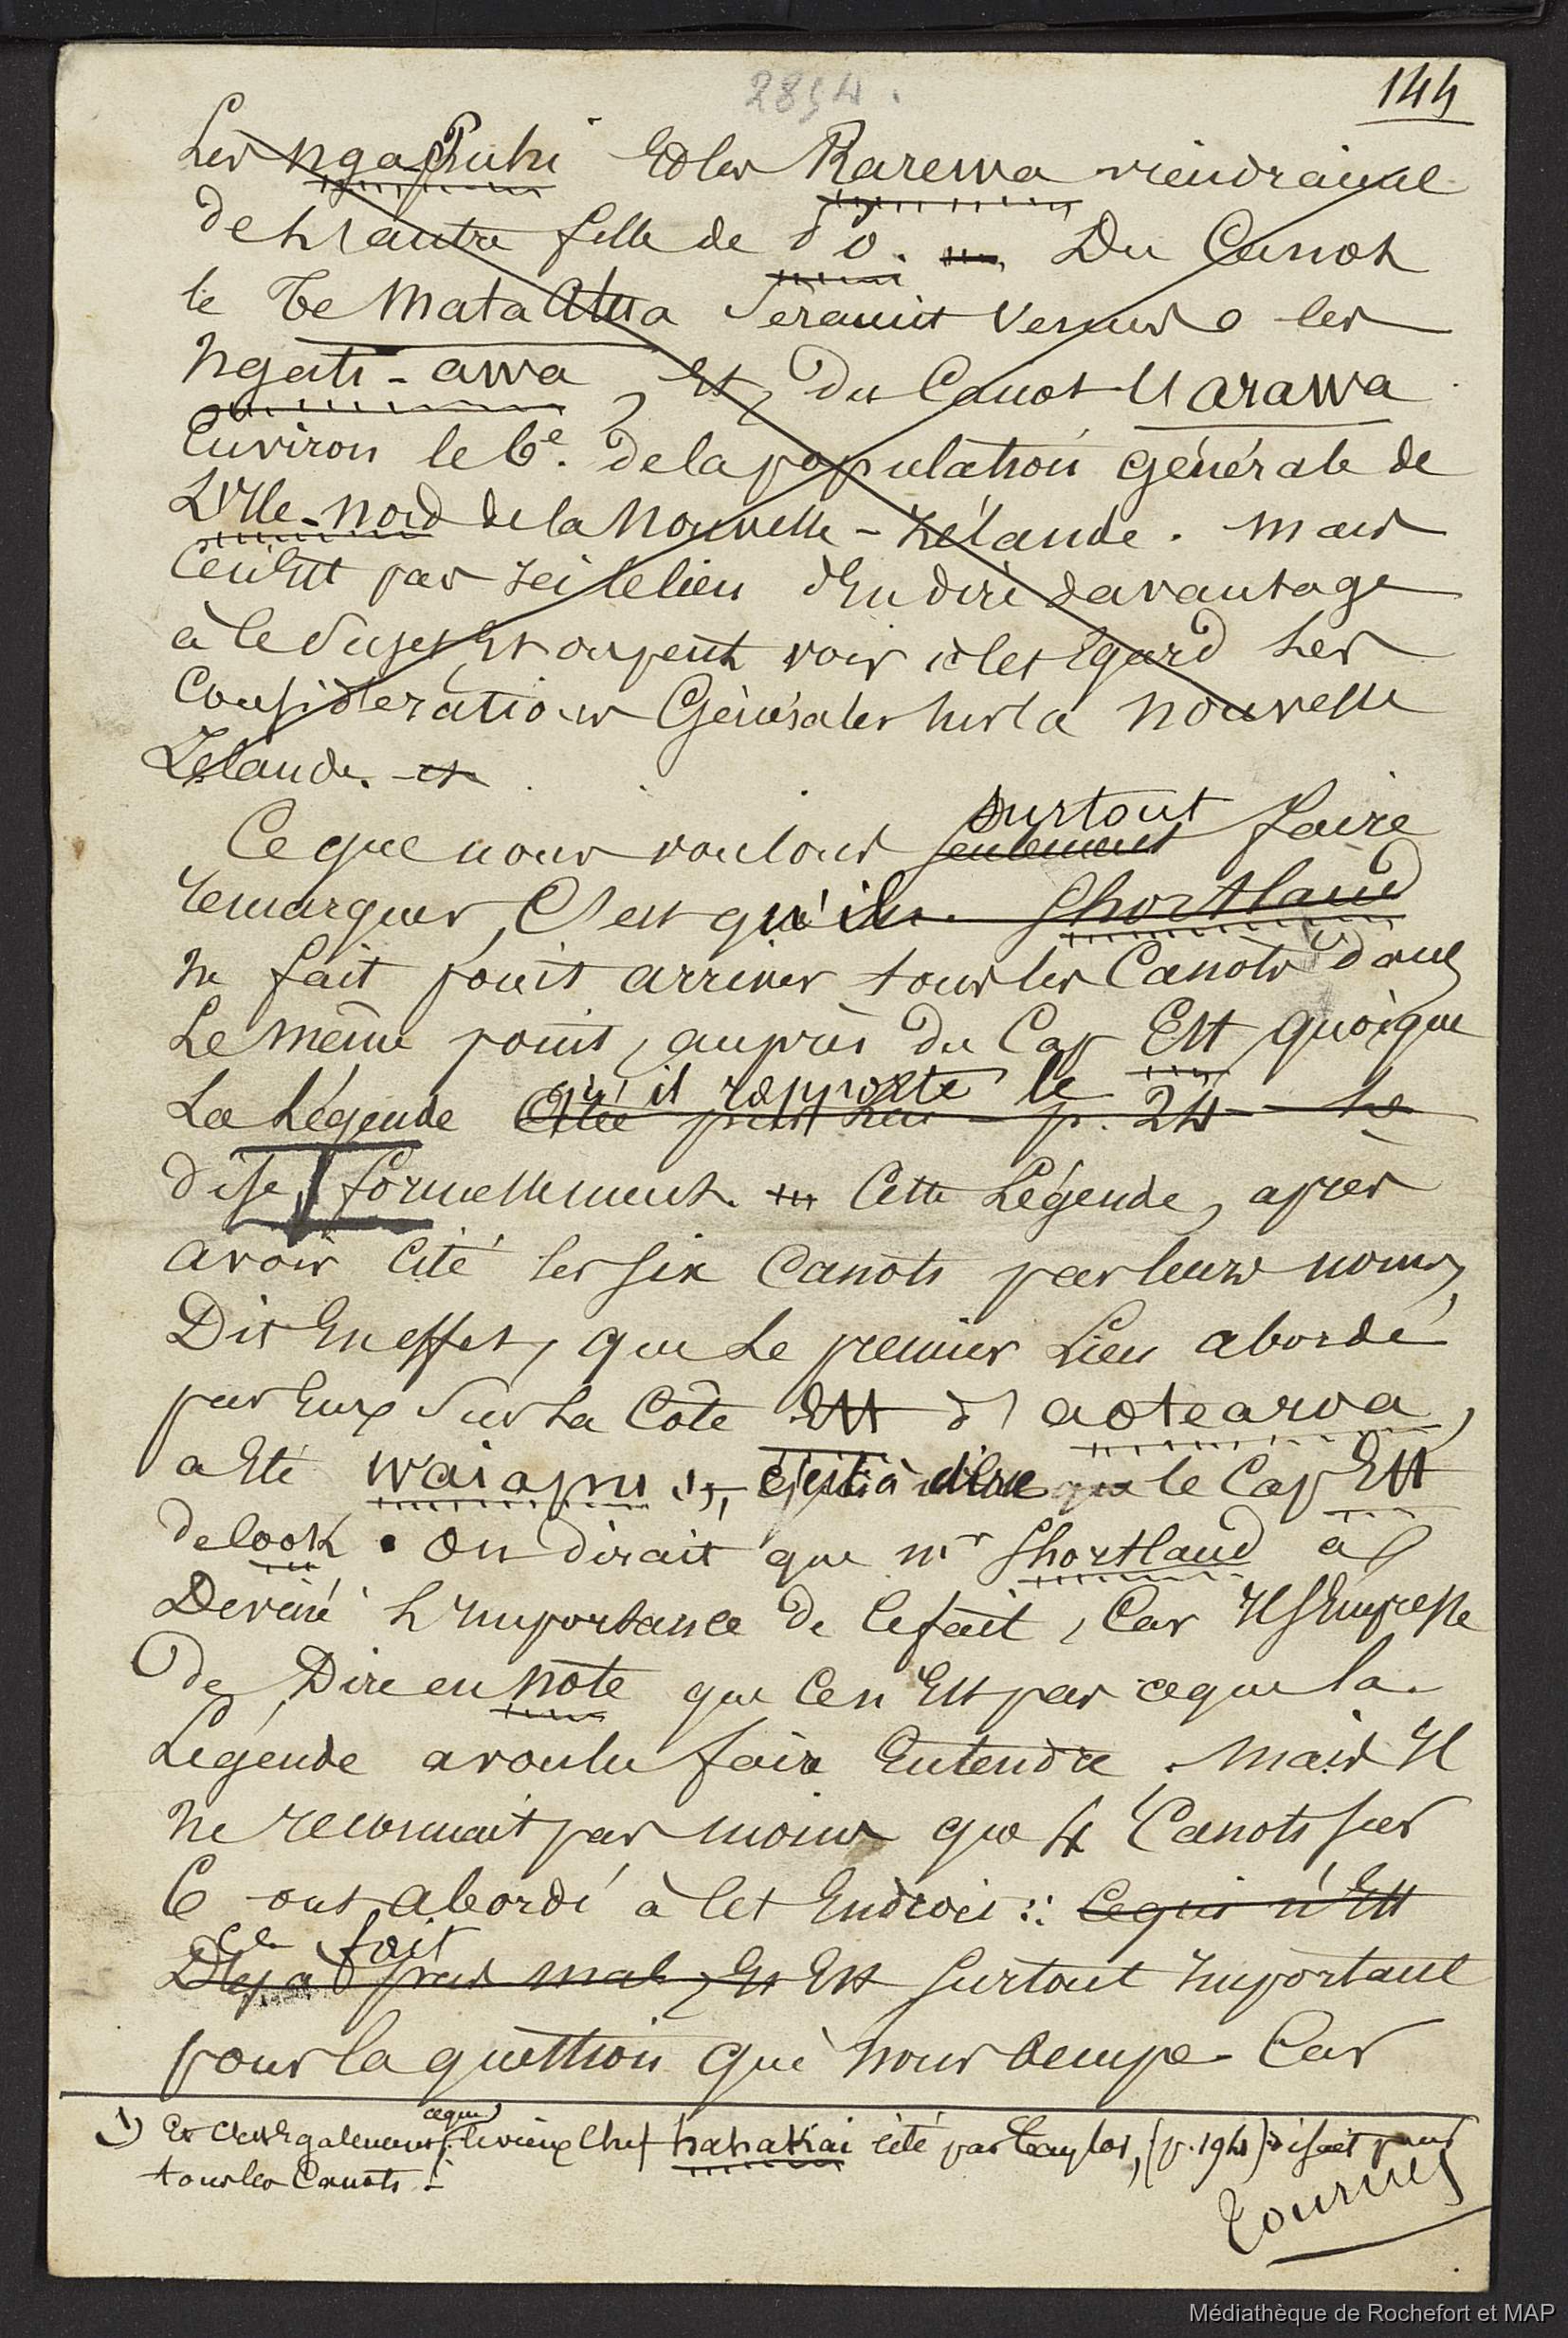 2854.
144
Les nga Puhi Et les Rarewa viendraient
de l'autre fille de do. Du Canot
le Te Mata Atua Seraient Venus les
Ngati-awa, Et, du Canot Uarawa
Environ le 6e. de la population générale de
L'Ile-Nord de la Nouvelle-Zélande. Mais
Ce n'Est pas Ici le lieu d'En dire davantage
à ce Sujet Et on peut voir à cet Egard Les
Considérations Générales sur la Nouvelle
Zélande. et
surtout
Ce que nous voulons seulement faire
remarquer, C'est qu'ils. Shortland
ne fait point arriver tous les Canots dans
Le même point, auprès du Cap Est quoique
qu'il rapporte le
La Légende Citée plus haut p. 24 Le
dise, formellement. Cette Légende, après
avoir Cité les six Canots par leurs noms,
Dit En effet, que Le premier Lieu abordé
par Eux Sur La Côte Est d'aotearoa,
a Eté Waiapu 1), c'est à dire le Cap Est
de Cook. On dirait que Mr Shortland a
Deviné L'Importance de Ce fait, Car Il s'Empresse
de Dire en Note que Ce n'Est pas ce que la
Légende a voulu faire Entendre. Mais Il
Ne reconnait pas moins que 4 Canots sur
6 ont abordé à Cet Endroit : Ce qui n'Est
Ce fait
Déjà pas mal, Et Est surtout Important
pour la question qui Nous Occupe. Car
1) Et C'est Egalement ce que le vieux Chef hahakai cité par Taylor, (p. 194) disait pour
tous les Canots.
Tournez
Médiathèque de Rochefort et MAP